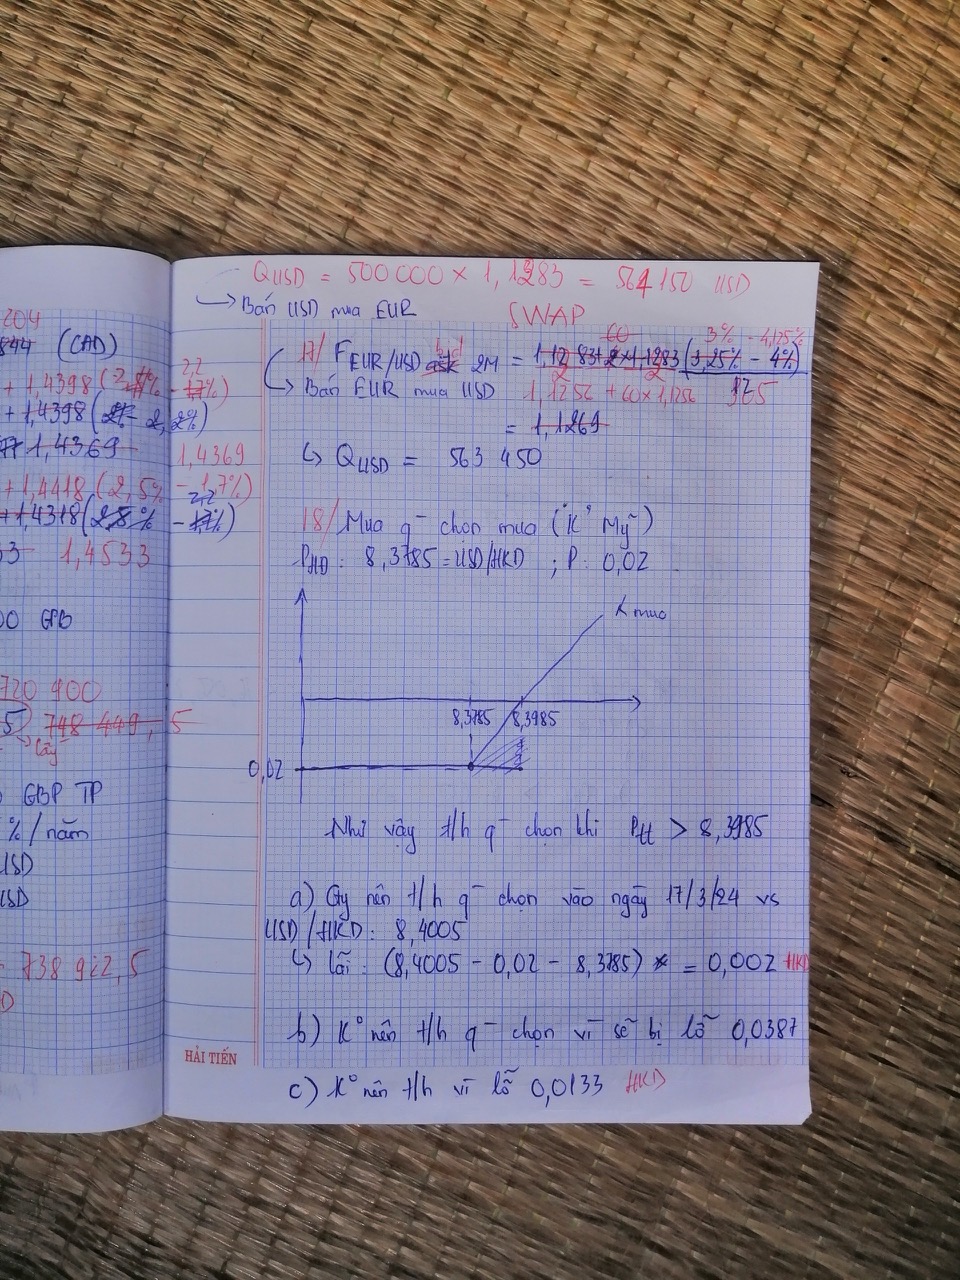 204
844 (CAD)
+ 1,4398 (2,5% - 1,7%) 2,2
+ 1,4398 ( 2,2%)
1,4369 1,4369
+ 1,4418 (2,5% - 1,7%)
+ 1,4318 (2,8% - 1,7%) 2,2
1,4533
00 GPB
720 400
5 748 449,5
lấy
GBP TP
%/năm
USD
USD
= 738 912,5
D
Q USD = 500 000 × 1,1283 = 564 150 USD
↪ Bán USD mua EUR SWAP
60 3% - 4,125%
17/ F EUR/USD ask bid 2M = 1,1283 + 2 × 1,1283 (3,25% - 4%)
↪ Bán EUR mua USD 1,1256 + 60 × 1,1256 365 12
= 1,1269
↳ Q USD = 563 450
18/ Mua q- chọn mua (K° Mỹ)
P HĐ : 8,3785 = USD/HKD ; P : 0,02
K mua
8,3785 8,3985
0,02
Như vậy t/h q- chọn khi P tt > 8,3985
a) Cty nên t/h q- chọn vào ngày 17/3/24 vs
USD/HKD : 8,4005
↳ lãi : (8,4005 - 0,02 - 8,3785) = 0,002 HKD
b) K° nên t/h q- chọn vì sẽ bị lỗ 0,0387
c) K° nên t/h vì lỗ 0,0133 HKD
HẢI TIẾN